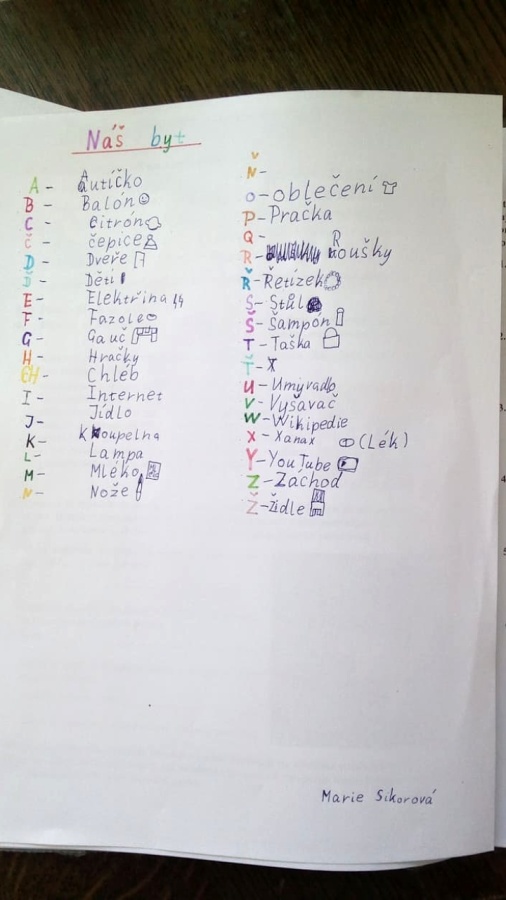 Náš byt
A - Autíčko
B - Balón
C - Citrón
Č - čepice
D - Dveře
Ď - Děti
E - Elektřina
F - Fazole
G - Gauč
H - Hračky
CH - Chléb
I - Internet
J - Jídlo
K - Koupelna
L - Lampa
M - Mléko
N - Nože
Ň -
O - oblečení
P - Pračka
Q -
R - Roušky
Ř - Řetízek
S - Stůl
Š - Šampón
T - Taška
Ť - X
U - Umývadlo
V - Vysavač
W - Wikipedie
X - Xanax (Lék)
Y - YouTube
Z - Záchod
Ž - židle
Marie Sikorová